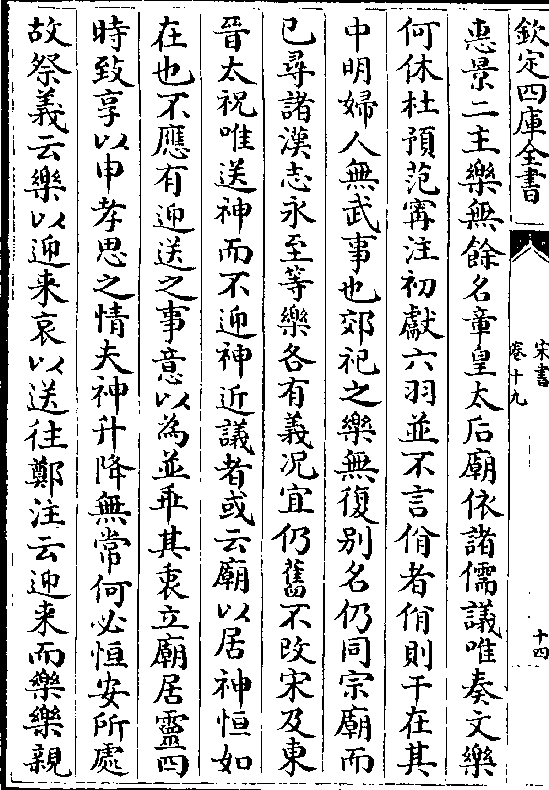 欽定四庫全書
宋書
卷十九
十四
惠景二主樂無餘名章皇太后廟依諸儒議唯奏文樂
何休杜預范甯注初獻六羽並不言佾者佾則干在其
中明婦人無武事也郊祀之樂無復别名仍同宗廟而
已尋諸漢志永至等樂各有義况宜仍舊不改宋及東
晉太祝唯送神而不迎神近議者或云廟以居神恒如
在也不應有迎送之事意以為並乖其衷立廟居靈四
時致享以申孝思之情夫神升降無常何必恒安所處
故祭義云樂以迎来哀以送往鄭注云迎来而樂樂親